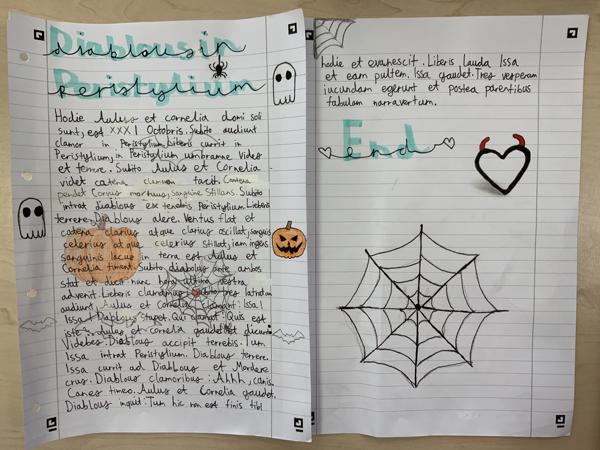 Diablous in
Peristylium
Hodie Aulus et cornelia domi soli
sunt, est xxx I Octobris. Subito audiunt
clamor in Peristylium, liberis currit in
Peristylium, in Peristylium umbramne vides
et terrere. Subito Aulus et Cornelia
videt catena clamorem facit. Catena
pendet Corvus mortuus, Sanguine Stillans. Subito
intrat diablous est tenebris Peristylium Lieberis
terrere. Diablous alere. Ventus flat et
catena clarius atque clarius oscillat, sanguis
celerius atque celerius stillat, iam ingens
sanguinis lacus in terra est Aulus et
Cornelia timent. Subito diabolus ante ambos
stat et dicit nunc hora ultima vestra
advenit. Lieberis clandimus Subito tres latratum
audiunt Aulus et Cornelia clamant: Issa!
Issa! Diablous stupet. Qui clamat? Quis est
iste? Aulus et Cornelia gaudet et dicunt:
Videbes. Diablous accipit terrebis. Tum
Issa intrat Peristylium. Diablous terrere.
Issa currit ad Diablous et Mordere
crus. Diablous clamoribus. Ahhh, canis.
Canes timeo. Aulus et Cornelia gaudet.
Diablous inquit: Tum hic non est finis tibi
hodie et evanescit. Liberis lauda Issa
et eam pultem. Issa gaudet. Tres vesperam
iucundam egerunt et postea parentibus
fabulam narraverunt.
End